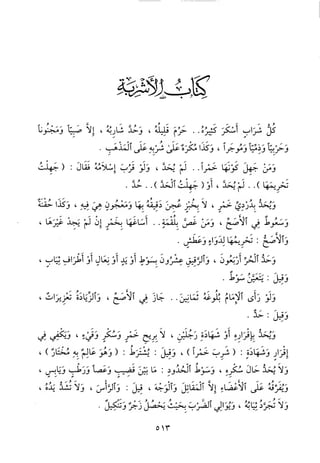 كتاب الأشربة
كل شراب أسكر كثيره.. حرم قليله ، وحد شاربه ، إلا صبيا ومجنونا
وحربيا وذميا وموجرا ، وكذا مكره على شربه على المذهب .
ومن جهل كونها خمرا.. لم يحد ، ولو قرب إسلامه فقال : ( جهلت
تحريمها ).. لم يحد ، أو ( جهلت الحد ).. حد .
ويحد بدردي خمر ، لا بخبز عجن دقيقه بها ومعجون هي فيه ، وكذا حقنة
وسعوط في الأصح ، ومن غص بلقمة.. أساغها بخمر إن لم يجد غيرها ،
والأصح : تحريمها لدواء وعطش .
وحد الحر أربعون ، والرقيق عشرون بسوط أو يد أو نعال أو أطراف ثياب ،
وقيل : يتعين سوط .
ولو رأى الإمام بلوغه ثمانين.. جاز في الأصح ، والزيادة تعزيرات ،
وقيل : حد .
ويحد بإقراره أو شهادة رجلين ، لا بريح خمر وسكر وقيء ، ويكفي في
إقرار وشهادة : ( شرب خمرا ) ، وقيل : يشترط : ( وهو عالم به مختار ) ،
ولا يحد حال سكره ، وسوط الحدود : بين قضيب وعصا ورطب ويابس ،
ويفرقه على الأعضاء إلا المقاتل والوجه ، قيل : والرأس ، ولا تشد يده ،
ولا تجرد ثيابه ، ويوالي الضرب بحيث يحصل زجر وتنكيل .
٥١٣